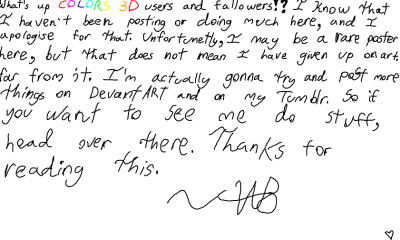 What's up COLORS 3D users and fallowers!? I know that
I haven't been posting or doing much here, and I
apologise for that. Unfortunetly, I may be a rare poster
here, but that does not mean I have given up on art.
far from it. I'm actually gonna try and post more
things on DeviantART and on my Tumblr. So if
you want to see me do stuff,
head over there. Thanks for
reading this.
~HB